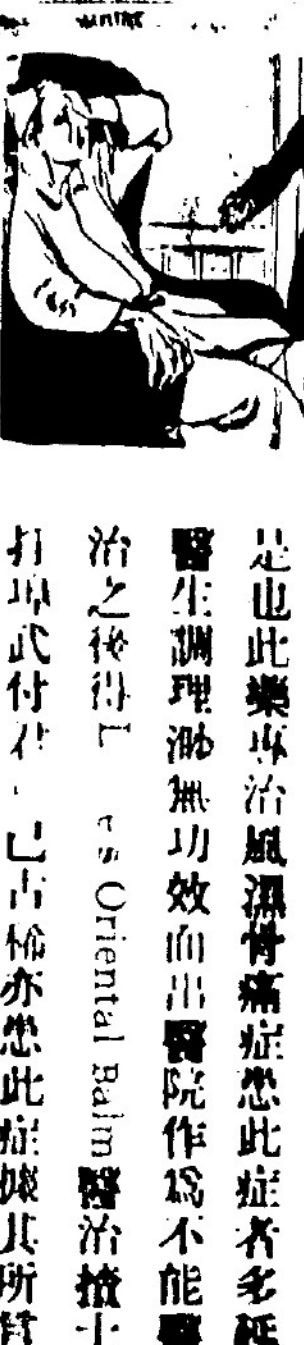 是也此藥專治風濕骨痛症患此症者多延
醫生調理渺無功效而出醫院作為不能醫
治之後得 Oriental Balm 醫治
打 武付君 已古稀亦患此症據其所